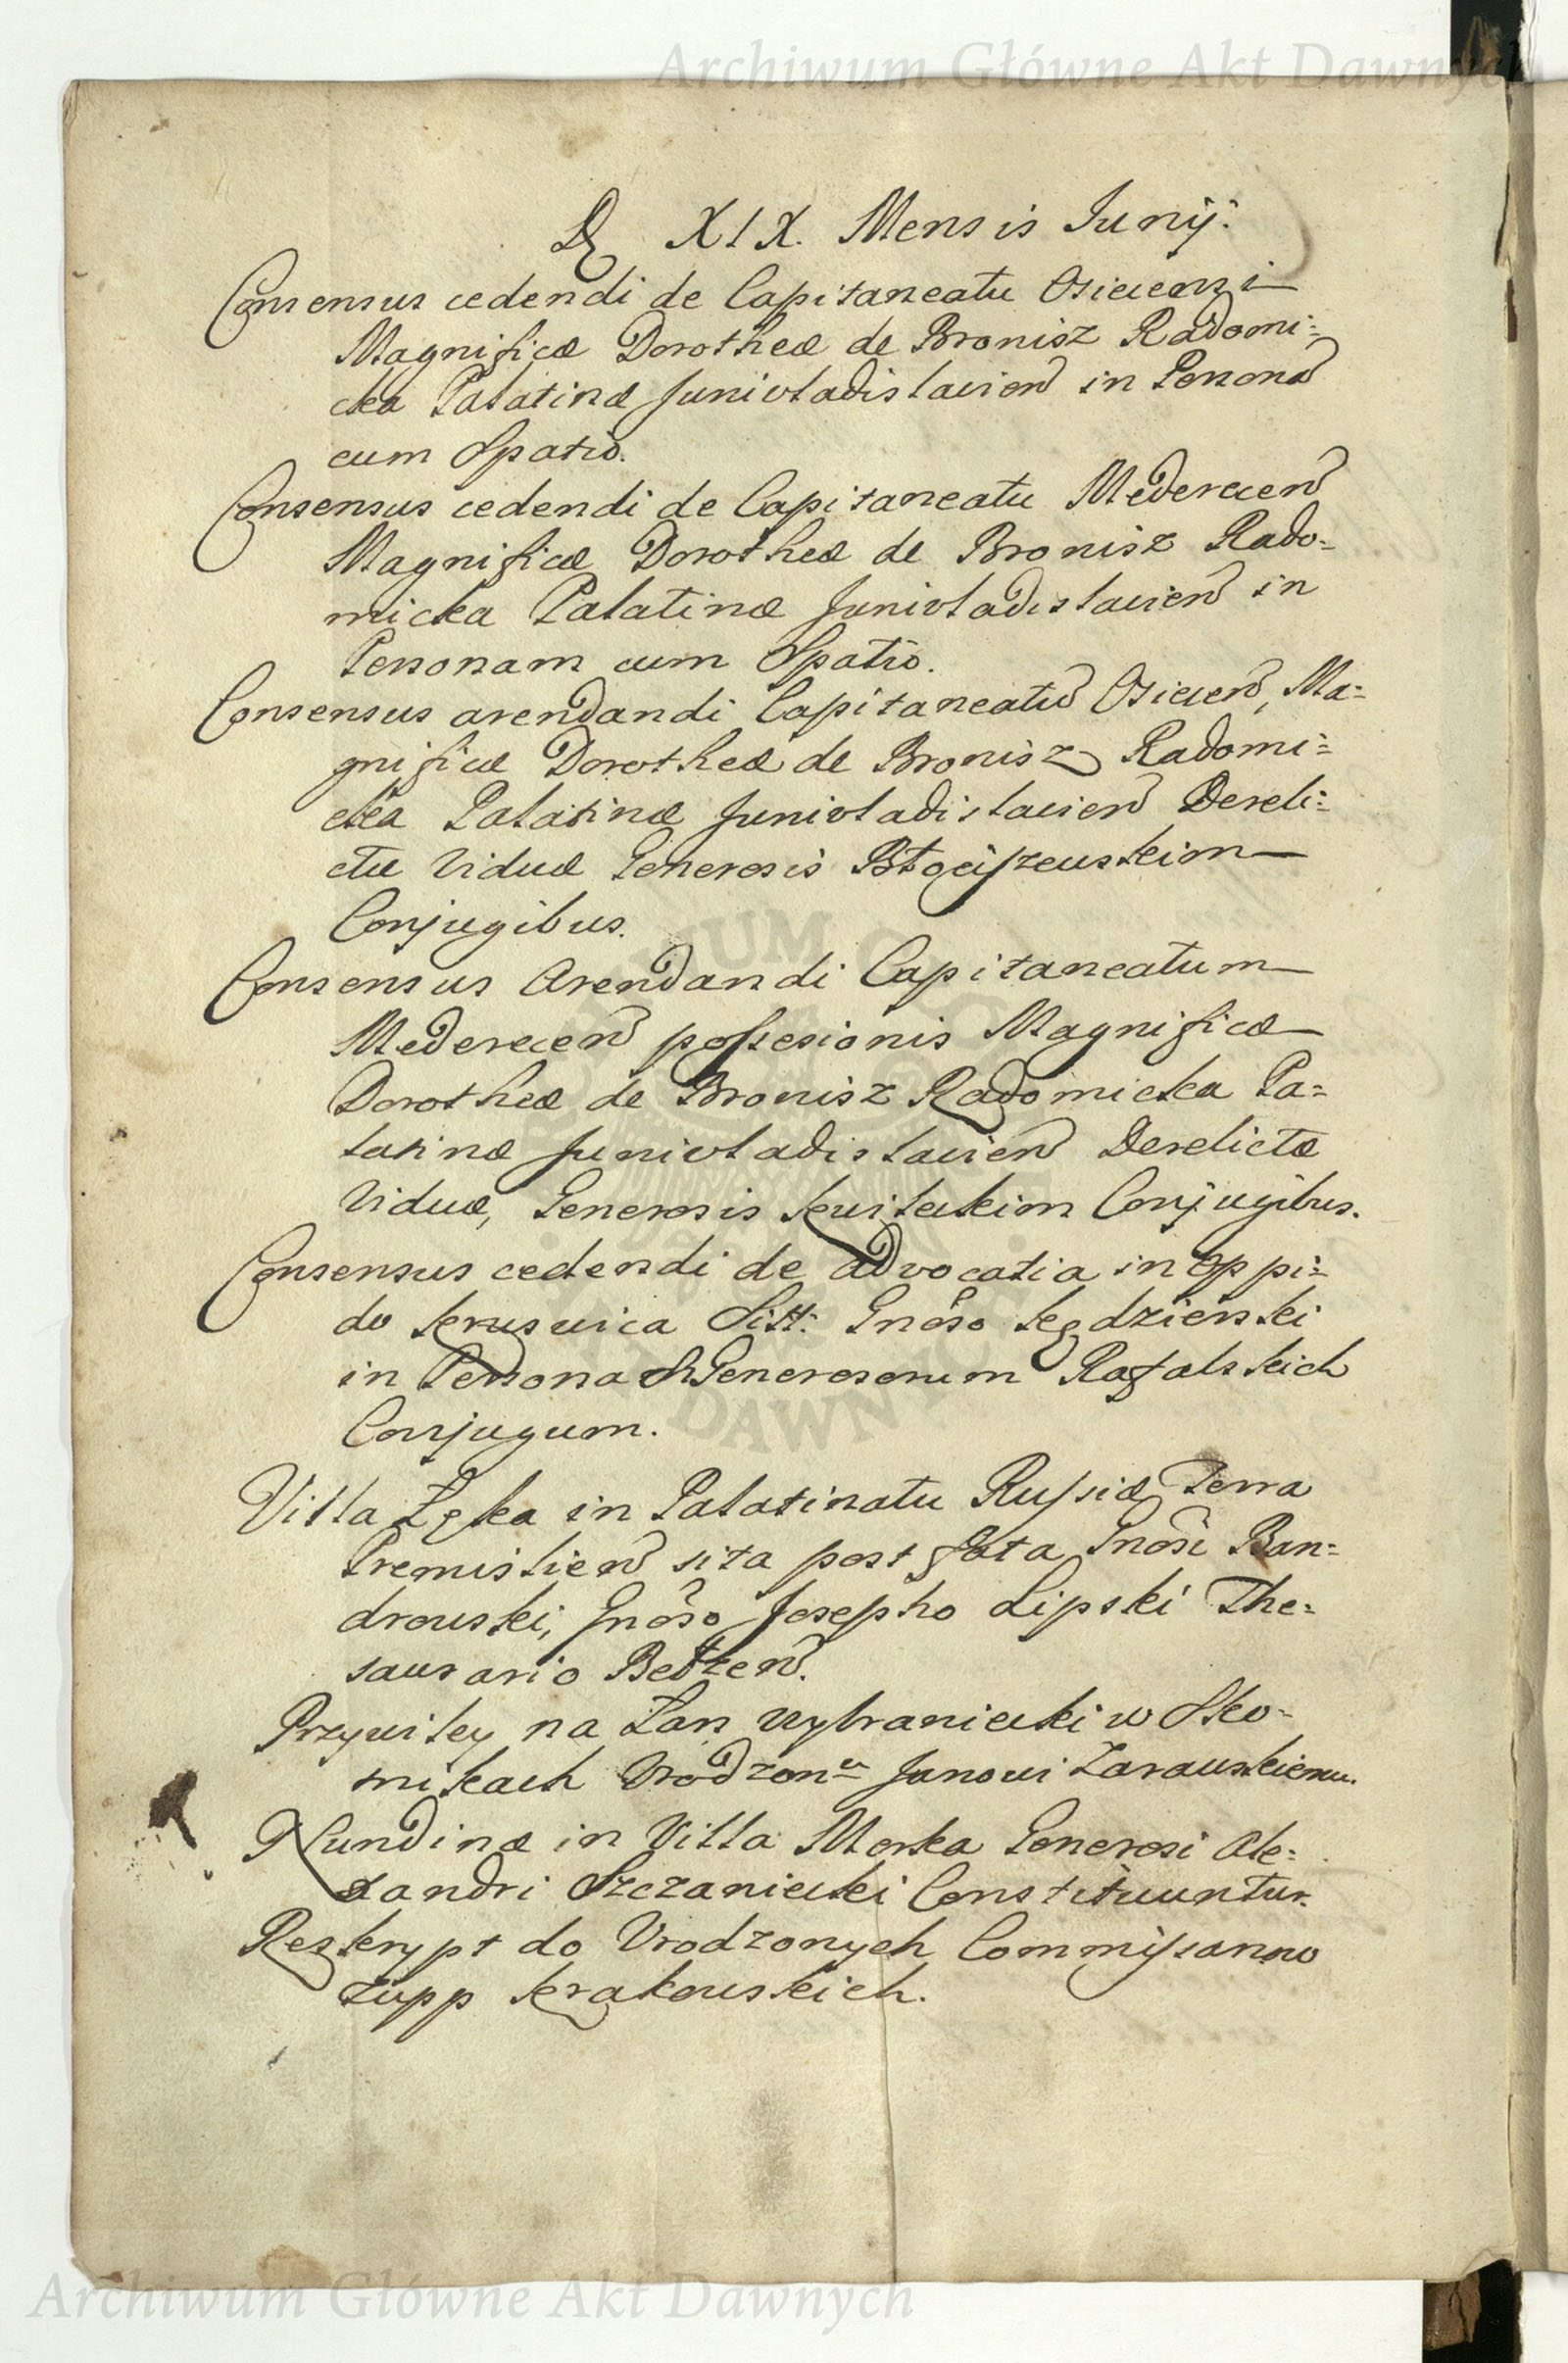 Archiwum Główne Akt Dawnych
D XIX. Mensis Junij.
Consensus cedendi de Capitaneatu Osiecensi
Magnificæ Dorotheæ de Bronisz Radomi=
cka Palatinæ Junivladislavien in Personã
cum Spatio.
Consensus cedendi de Capitaneatu Mederecen
Magnificæ Dorotheæ de Bronisz Rado=
micka Palatinæ Junivladislavien in
Personam cum Spatio.
Consensus arendandi Capitaneatũ Osiecen, Ma=
gnificæ Dorotheæ de Bronisz Radomi=
cka Palatinæ Junivladislavien Dereli=
ctæ Viduæ Generosis
Conjugibus.
Consensus Arendandi Capitaneatum
Mederecen possesionis Magnificæ
Dorotheæ de Bronisz Radomicka Pa=
latinæ Junivladislavien Derelictæ
Viduæ, Generosis Kwileckim Conjugibus.
Consensus cedendi de advocatia in oppi=
do Kruswica Sitt: Gnoso Kędzierski
in Persona Generosorum Rafalskich
Conjugum.
Villa Łęka in Palatinatu Russiæ Terra
Premislien sita post fata Gnosi Ban=
drowski, Gnoso Josepho Lipski The=
saurario Bełzen.
Przywiley na Łan wybraniecki w Sko=
mikach Vrodzonu Janowi Zarawskiemu.
Nundinæ in Villa Morka Generosi Ale=
xandri Szczaniecki Constituuntur.
Reskrypt do Vrodzonych Commissarzow
Zupp Krakowskich.
Archiwum Główne Akt Dawnych